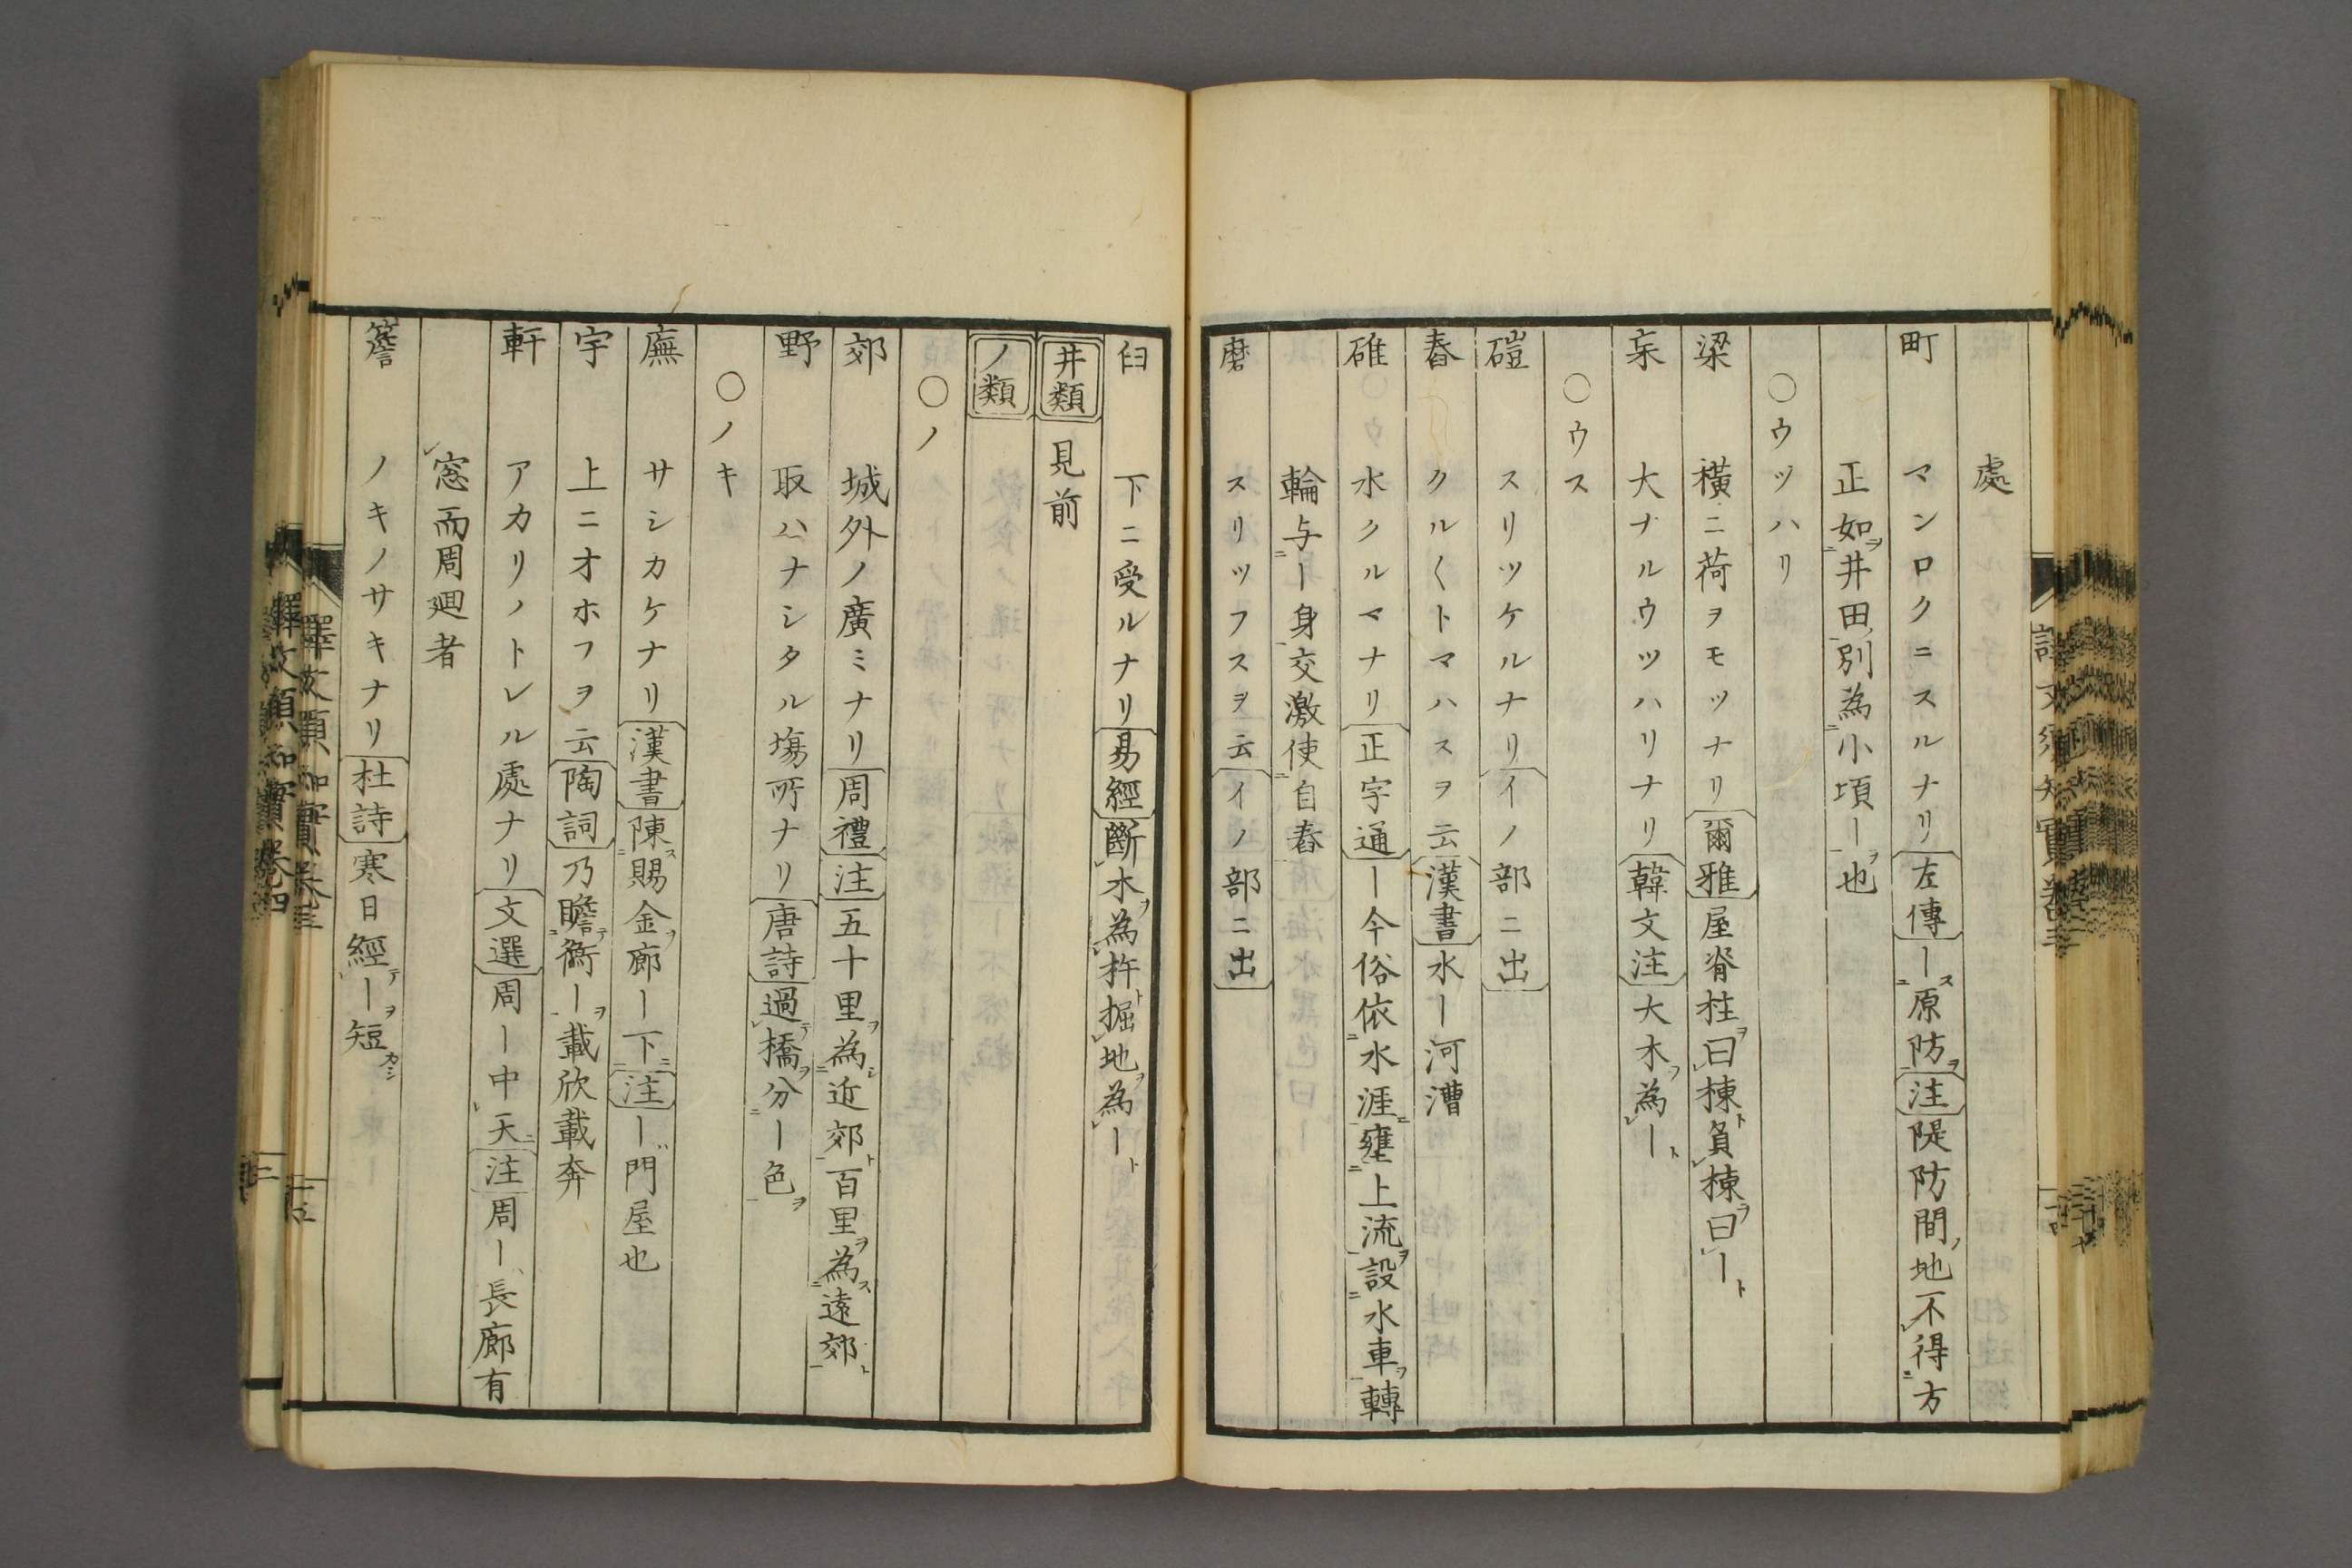 處
町 マンロクニスルナリ 左傳 ー原防 注 隄防間地不得方
正如井田別為小項ー也
○ウツハリ
梁 横ニ荷ヲモツナリ 爾雅 屋脊柱曰棟負棟曰ー
杗 大ナルウツハリナリ 韓文注 大木為ー
○ウス
磑 スリツケルナリ イノ部ニ出
舂 クル〱トマハスヲ云 漢書 水ー河漕
碓 水クルマナリ 正字通 ー今俗依水涯壅上流設水車轉
輪与ー身交激使自舂
磨 スリツフスヲ云 イノ部ニ出
臼 下ニ受ルナリ 易經 斷木為杵掘地為ー
井類 見前
ノ類
○ノ
郊 城外ノ廣ミナリ 周禮 注 五十里為近郊百里為遠郊
野 取ハナシタル塲所ナリ 唐詩 過橋分ー色
○ノキ
廡 サシカケナリ 漢書 陳賜金廊ー下 注 ー門屋也
宇 上ニオホフヲ云 陶詞 乃瞻衡ー載欣載奔
軒 アカリノトレル處ナリ 文選 周ー中天 注 周ー長廊有
窓而周廻者
簷 ノキノサキナリ 杜詩 寒日經ー短
譯文須知實卷三